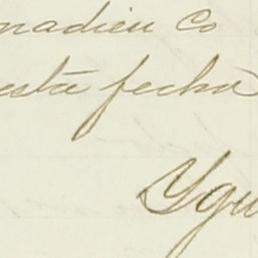 nadieu Co
esta fecha
Ygu